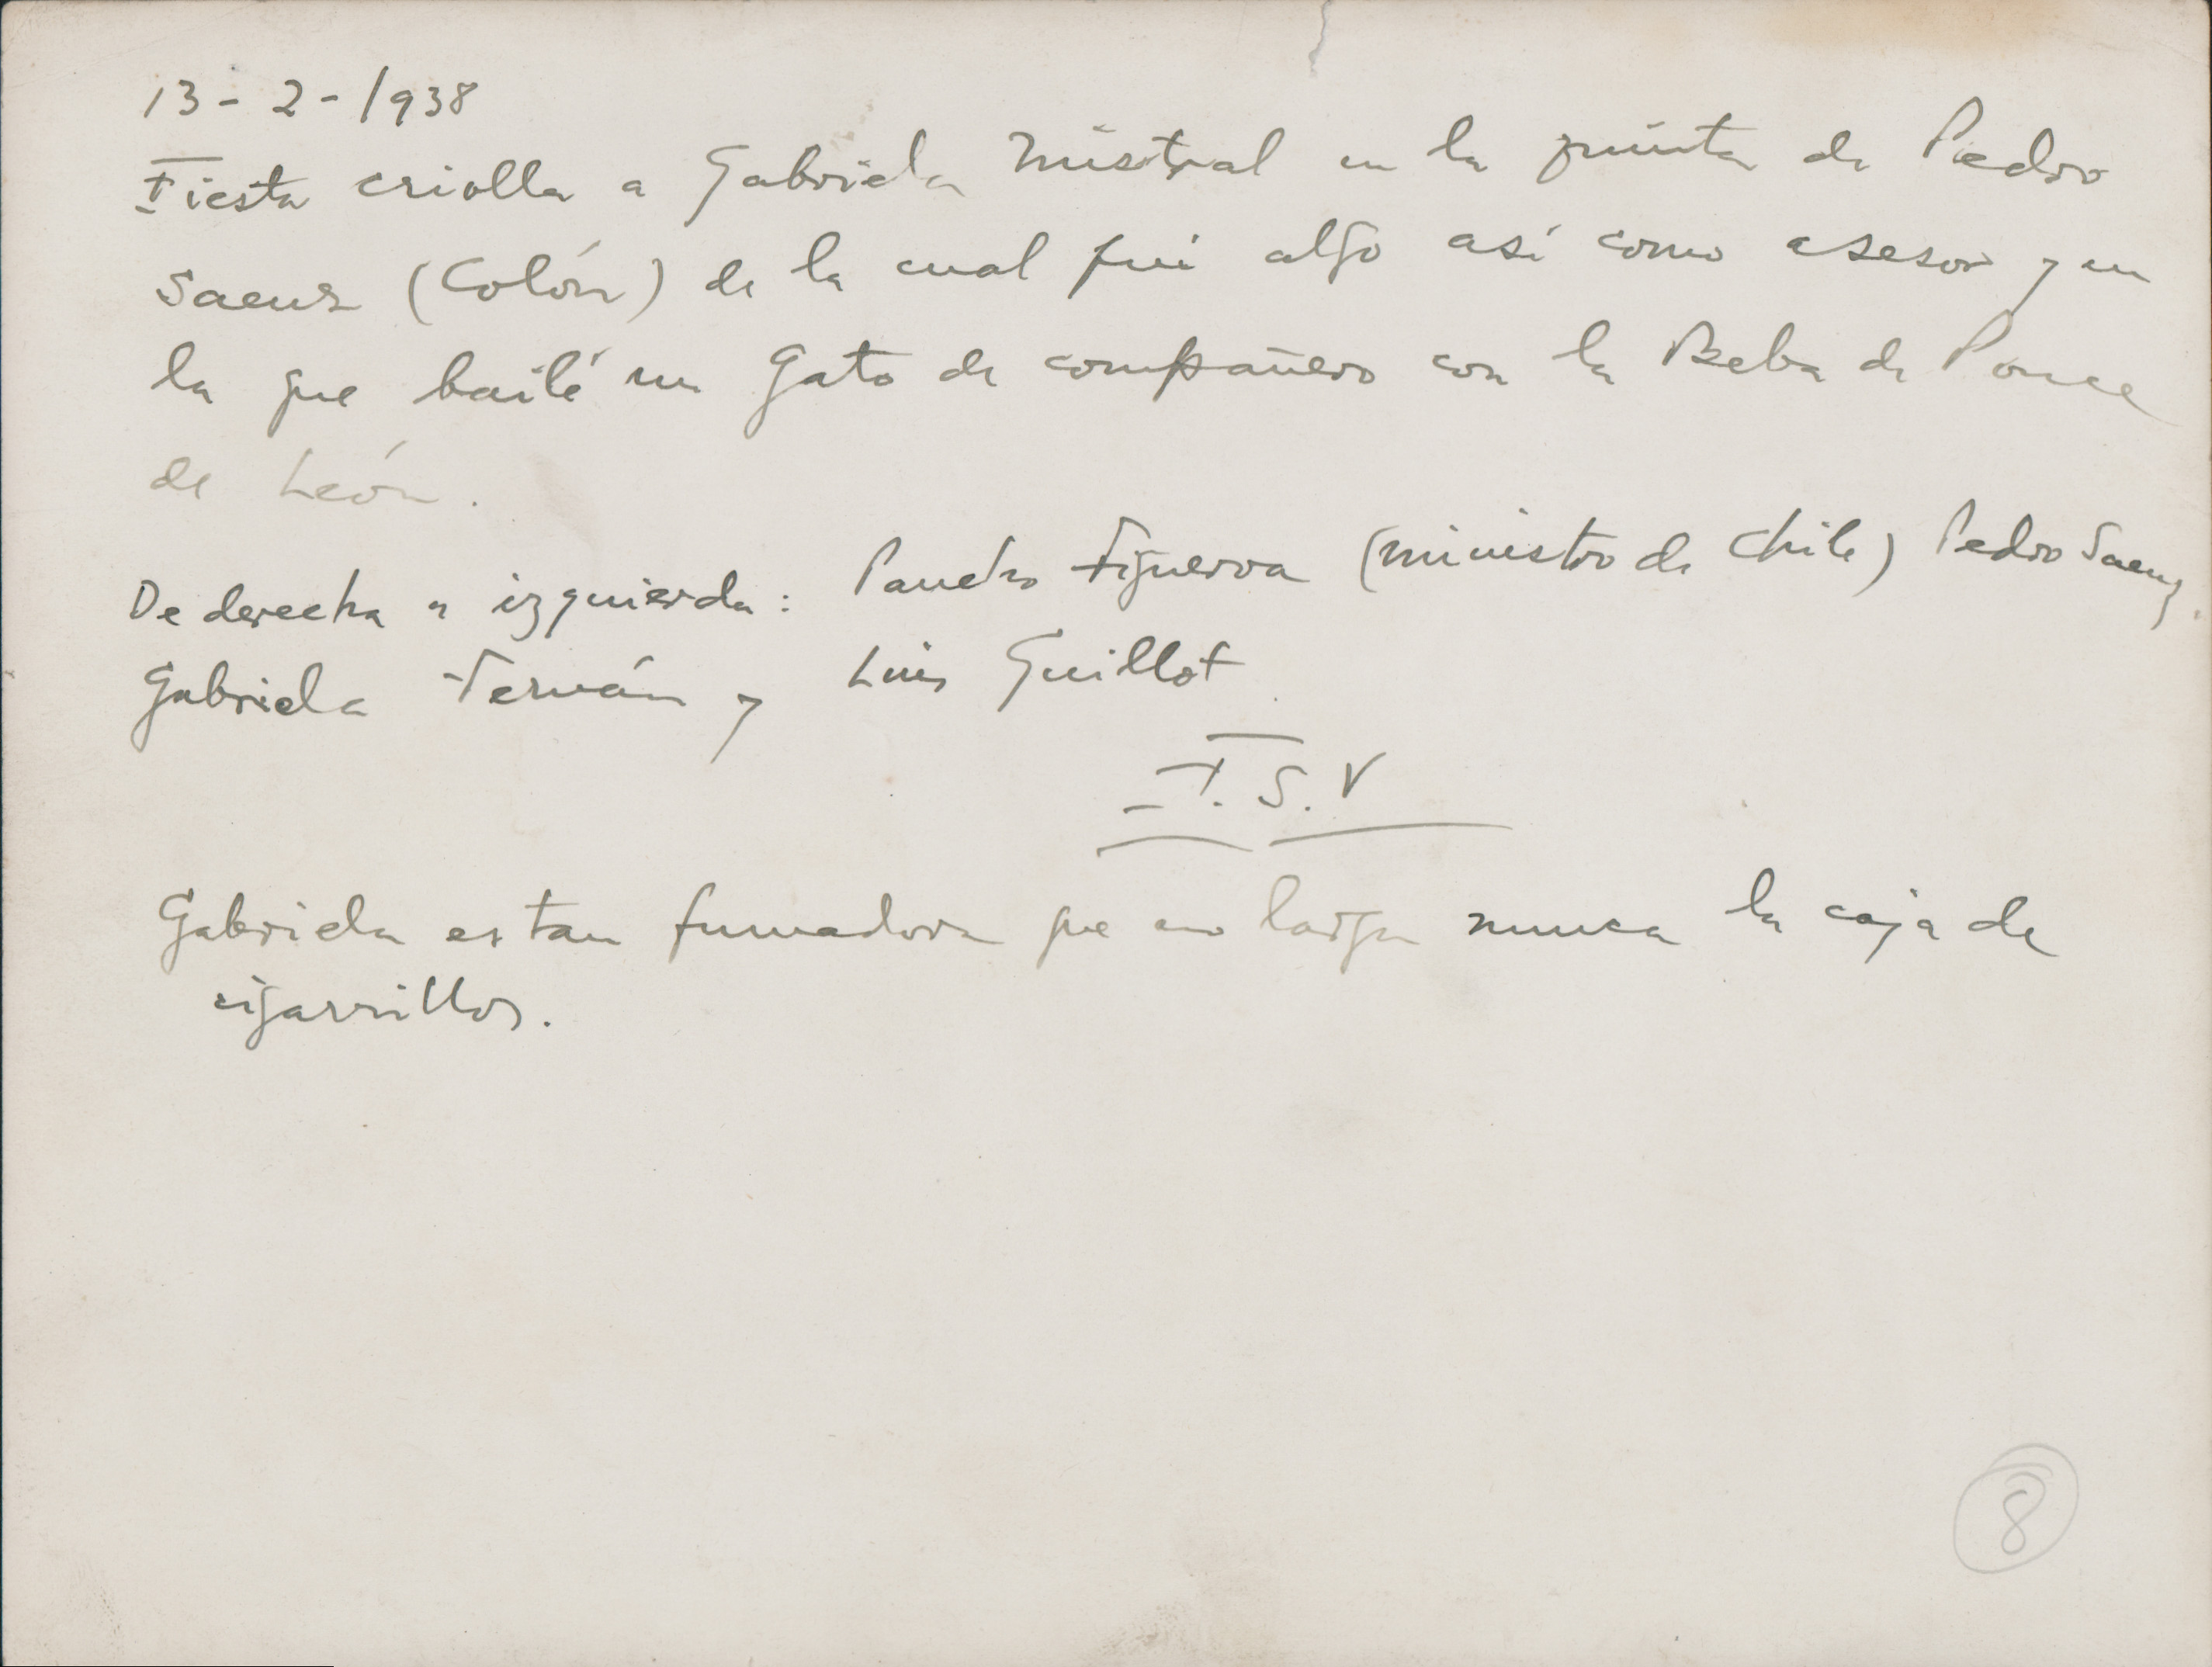 13 - 2 - 1938
Fiesta criolla a Gabriela Mistral en la quinta de Pedro
Saenz (Colón) de la cual fui algo así como asesor y en
la que bailé un Gato de compañero con la Beba de Ponce
de León.
De derecha a izquierda: Pancho Figueroa (ministro de Chile) Pedro Saenz
Gabriela Fernán y Luis Guillot
F. S. V
Gabriela es tan fumadora que no larga nunca la caja de
cigarrillos.
8